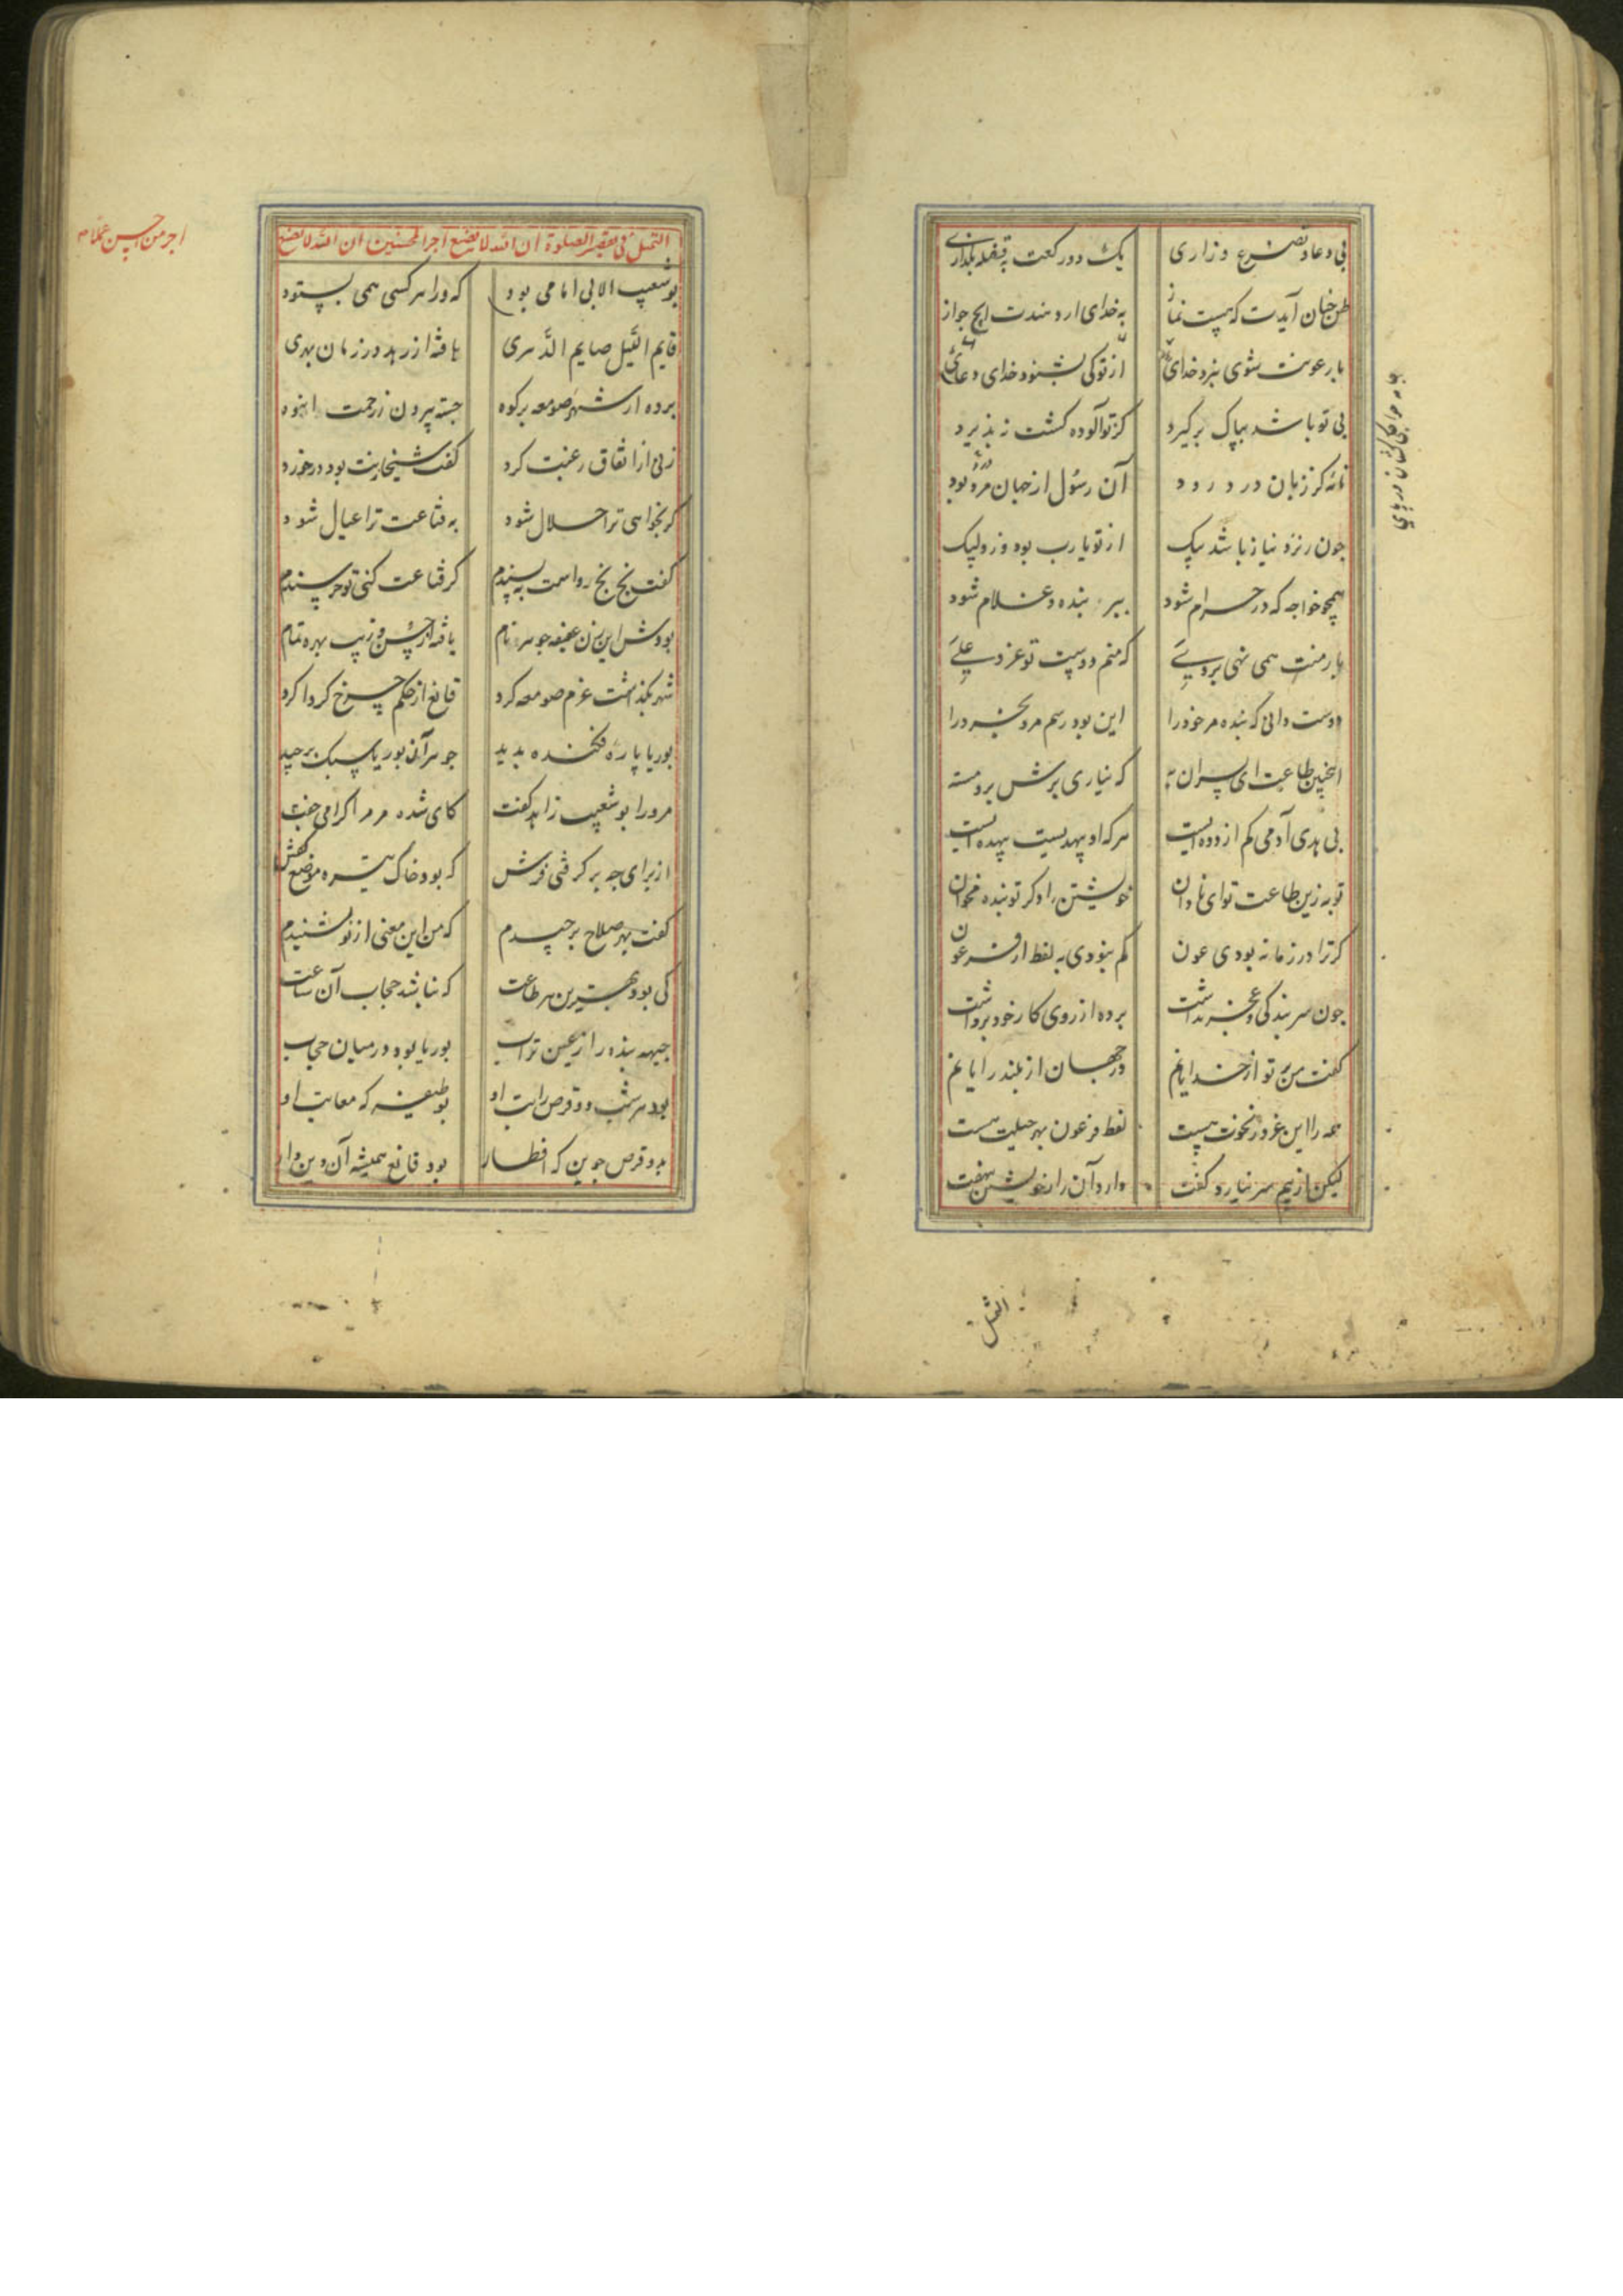 بی دعا و تضرع و زاری یک دو رکعت به غفله بگذاری
ظن چنان آیدت که هست نماز به خدای ار دهندت ایچ جواز
با رعونت شوی بنزد خدای از تو کی بشنود خدای دعای
بی تو باشد بپاک برگیرد کز تو آلوده گشت نپذیرد
نامه کز زبان درد رود آن رسول از جهان مرد بود
چون ز نزد نیاز باشد پیک از تو یارب بود وزو لبیک
همچو خواجه که در حرام شود ببر بنده و غلام شود
بار منت همی نهی بر وی که منم دوست تو عز و علی
دوست دانی که بنده مر خود را این بود رسم مرد بخرد را
اینچنین طاعت ای پسر آن به که نیاری برش برو مسته
بی بدی آدمی کم از دده ایست هرکه او بیهده ایست بیهده ایست
توبه زین طاعت تو ای نادان خویشتن را دگر تو بنده مخوان
گر ترا در زمانه بودی عون کم نبودی به لفظ از فرعون
چون سر بندگی و عجز نداشت پرده از روی کار خود برداشت
گفت من برتر از خدایانم در جهان از بلند رایانم
همه را این غرور و نخوت هست لفظ فرعون بهر جبلت هست
لیکن از بیم سر نیارد گفت دارد آن راز خویشتن نهفت
التمثل
التمثل فی تقصیر الصلوة ان الله لا یضیع اجر المحسنین ان الله لا یضیع
اجر من احسن عملا
بوشعیب الابی امامی بود که ورا هر کسی همی بستود
قایم اللیل صایم الدهری یافته از زهد در زمان بهری
برده از شهر صومعه بر کوه جسته بیرون ز زحمت انبوه
زنی از اتفاق رغبت کرد گفت شیخا زنت بود در خورد
گر بخواهی ترا حلال شود به قناعت ترا عیال شود
گفت بخ بخ رواست بپسندم گر قناعت کنی تو خرسندم
بود این زن عفیفه جوهره نام یافته از حسن و زیب بهره تمام
شهر بگذاشت عزم صومعه کرد قانع از حکم چرخ گرداگرد
بوریا پاره فکنده بدید جوهر آن بوریا سبک برچید
مر ورا بوشعیب زاهد گفت کای شده مر مرا گرامی جفت
از برای چه بر گرفتی فرش که بود خاک تیره موضع کفش
گفت بهر صلاح برچیدم که من این معنی از تو بشنیدم
کی بود بهترین هر طاعت که نباشد حجاب آن ساعت
جبهه بنده را ز عین تراب بوریا بود در میان حجاب
بود هر شب دو قرص راتب او بوظیفه که معایت او
بدو قرص جوین که افطار بود قانع همیشه آن دین دار